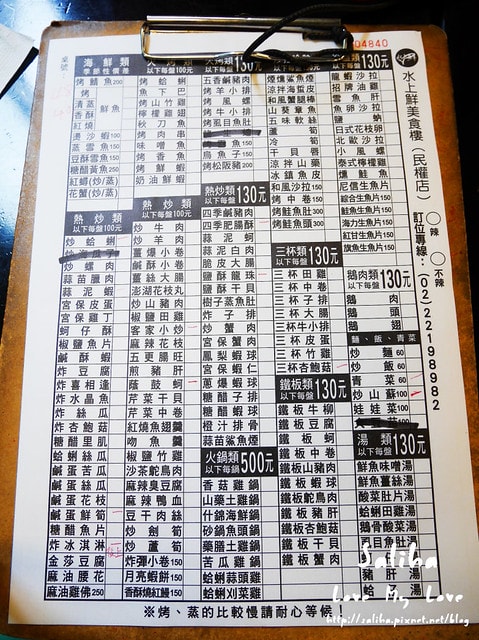 04840
桌號
水上鮮美食樓（民權店）
訂位專線：(02)22198982
○辣 ○不辣
海鮮類
季節性價差
烤鯖魚200
清蒸
香酥
紅燒
鮮魚
湯沙蝦100
蒸雪魚150
豆酥雪魚150
糖醋黃魚250
紅蟳(炒/蒸)
花蟹(炒/蒸)
熱炒類
以下每盤100元
炒蛤蜊
炒螺肉
蒜苗臘肉
蒜泥蝦
宮保皮蛋
宮保雞丁
蚵仔酥
椒鹽魚片
鹹酥蝦
炸豆腐
炸喜相逢
炸水晶魚
炸絲瓜
炸杏鮑菇
糖醋里肌
蛤蜊絲瓜
鹹蛋苦瓜
鹹蛋絲瓜
鹹蛋花枝
鹹蛋鮮筍
糖醋魚片
炸冰淇淋
金莎豆腐
麻油腰花
麻油雞佛250
以下每盤100元
烤蛤蜊
魚下巴
烤山竹雞
檸檬雞
秋刀魚
烤肉串
味噌魚
烤香魚
烤鮮蝦
奶油鮮蝦
熱炒類
以下每盤100元
炒牛肉
炒羊肉
薑爆小卷
鹹酥小卷
薑絲大腸
澎湖花枝丸
炒山豬肉
椒鹽田雞
客家小炒
麻辣花枝
五更腸旺
煎豬肝
蔭鼓蚵
芹菜干貝
芹菜中卷
紅燒魚翅羹
吻魚羹
椒鹽竹雞
沙茶鴕鳥肉
麻辣臭豆腐
麻辣鴨血
豆干肉絲
炒劍筍
炒蘆筍
炸彈小卷150
月亮蝦餅150
香酥燒紅鰻150
130元
以下每盤
五香鹹豬肉
烤羊小排
烤風螺
烤牛小排
烤虱目魚肚
烏魚子
烤松阪豬200
熱炒類
以下每盤
130元
四季鹹豬肉
四季肥腸酥
蒜泥蚵
蒜泥白肉
脆皮大腸
鹽酥龍珠
鹽酥干貝
樹子蒸魚肚
炸子排
炒蟹肉
宮保蟹肉
鳳梨蝦球
宮保蝦仁
蔥爆蝦球
糖醋子排
糖醋蝦球
橙汁排骨
蒜苗鯊魚煙
火鍋類
以下每鍋
500元
香菇雞鍋
山藥土雞鍋
什錦海鮮鍋
砂鍋魚頭鍋
藥膳土雞鍋
苦瓜雞鍋
蛤蜊蒜頭雞
蛤蜊刈菜雞
130元
煙燻鯊魚煙
涼拌海蜇皮
和風蟹腿棒
山葵章魚
五味軟絲
蘆筍
冷筍
干貝唇
涼拌山藥
冰鎮魚皮
和風沙拉150
烤中卷150
烤鮭魚肚300
烤鮭魚頭300
三杯類
以下每盤
130元
三杯田雞
三杯中卷
三杯子排
三杯大腸
三杯牛小排
三杯皮蛋
三杯竹雞
三杯杏鮑菇
鐵板類
以下每盤
130元
鐵板牛柳
鐵板豆腐
鐵板蚵
鐵板中卷
鐵板山豬肉
鐵板鴕鳥肉
鐵板豬肝
鐵板杏鮑菇
鐵板干貝
鐵板蟹肉
130元
龍蝦沙拉
招牌油雞
雪魚肝
魚卵沙拉
鹽蚋
日式花枝卵
北歐沙拉
小風螺
泰式檸檬雞
燻鮭魚
尼信生魚片
綜合生魚片150
鮭魚生魚片150
海力生魚片150
紅甘生魚片150
旗魚生魚片150
鵝肉類
以下每盤
130元
鵝肉
鵝頭
鵝翅
麵、飯、青菜
炒麵60
炒飯60
青菜60
炒山蘇100
娃娃菜100
湯類
以下每鍋
130元
鮮魚味噌湯
鮮魚薑絲湯
酸菜肚片湯
蛤蜊田雞湯
鵝骨酸菜湯
虱目魚肚湯
豬肝湯
蛤蜊湯
※烤、蒸的比較慢請耐心等候！
Saliha
Love My Love
http://saliha.pixnet.net/blog